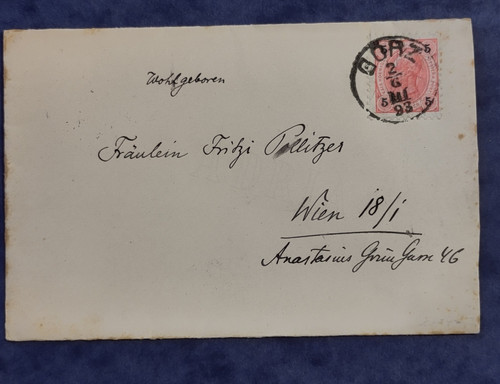 GÖRZ
2
6
III
93
5 5
5 5
Wohlgeboren
Fräulein Fritzi Pollitzer
Wien 18/1
Anastasius Grün Gasse 46